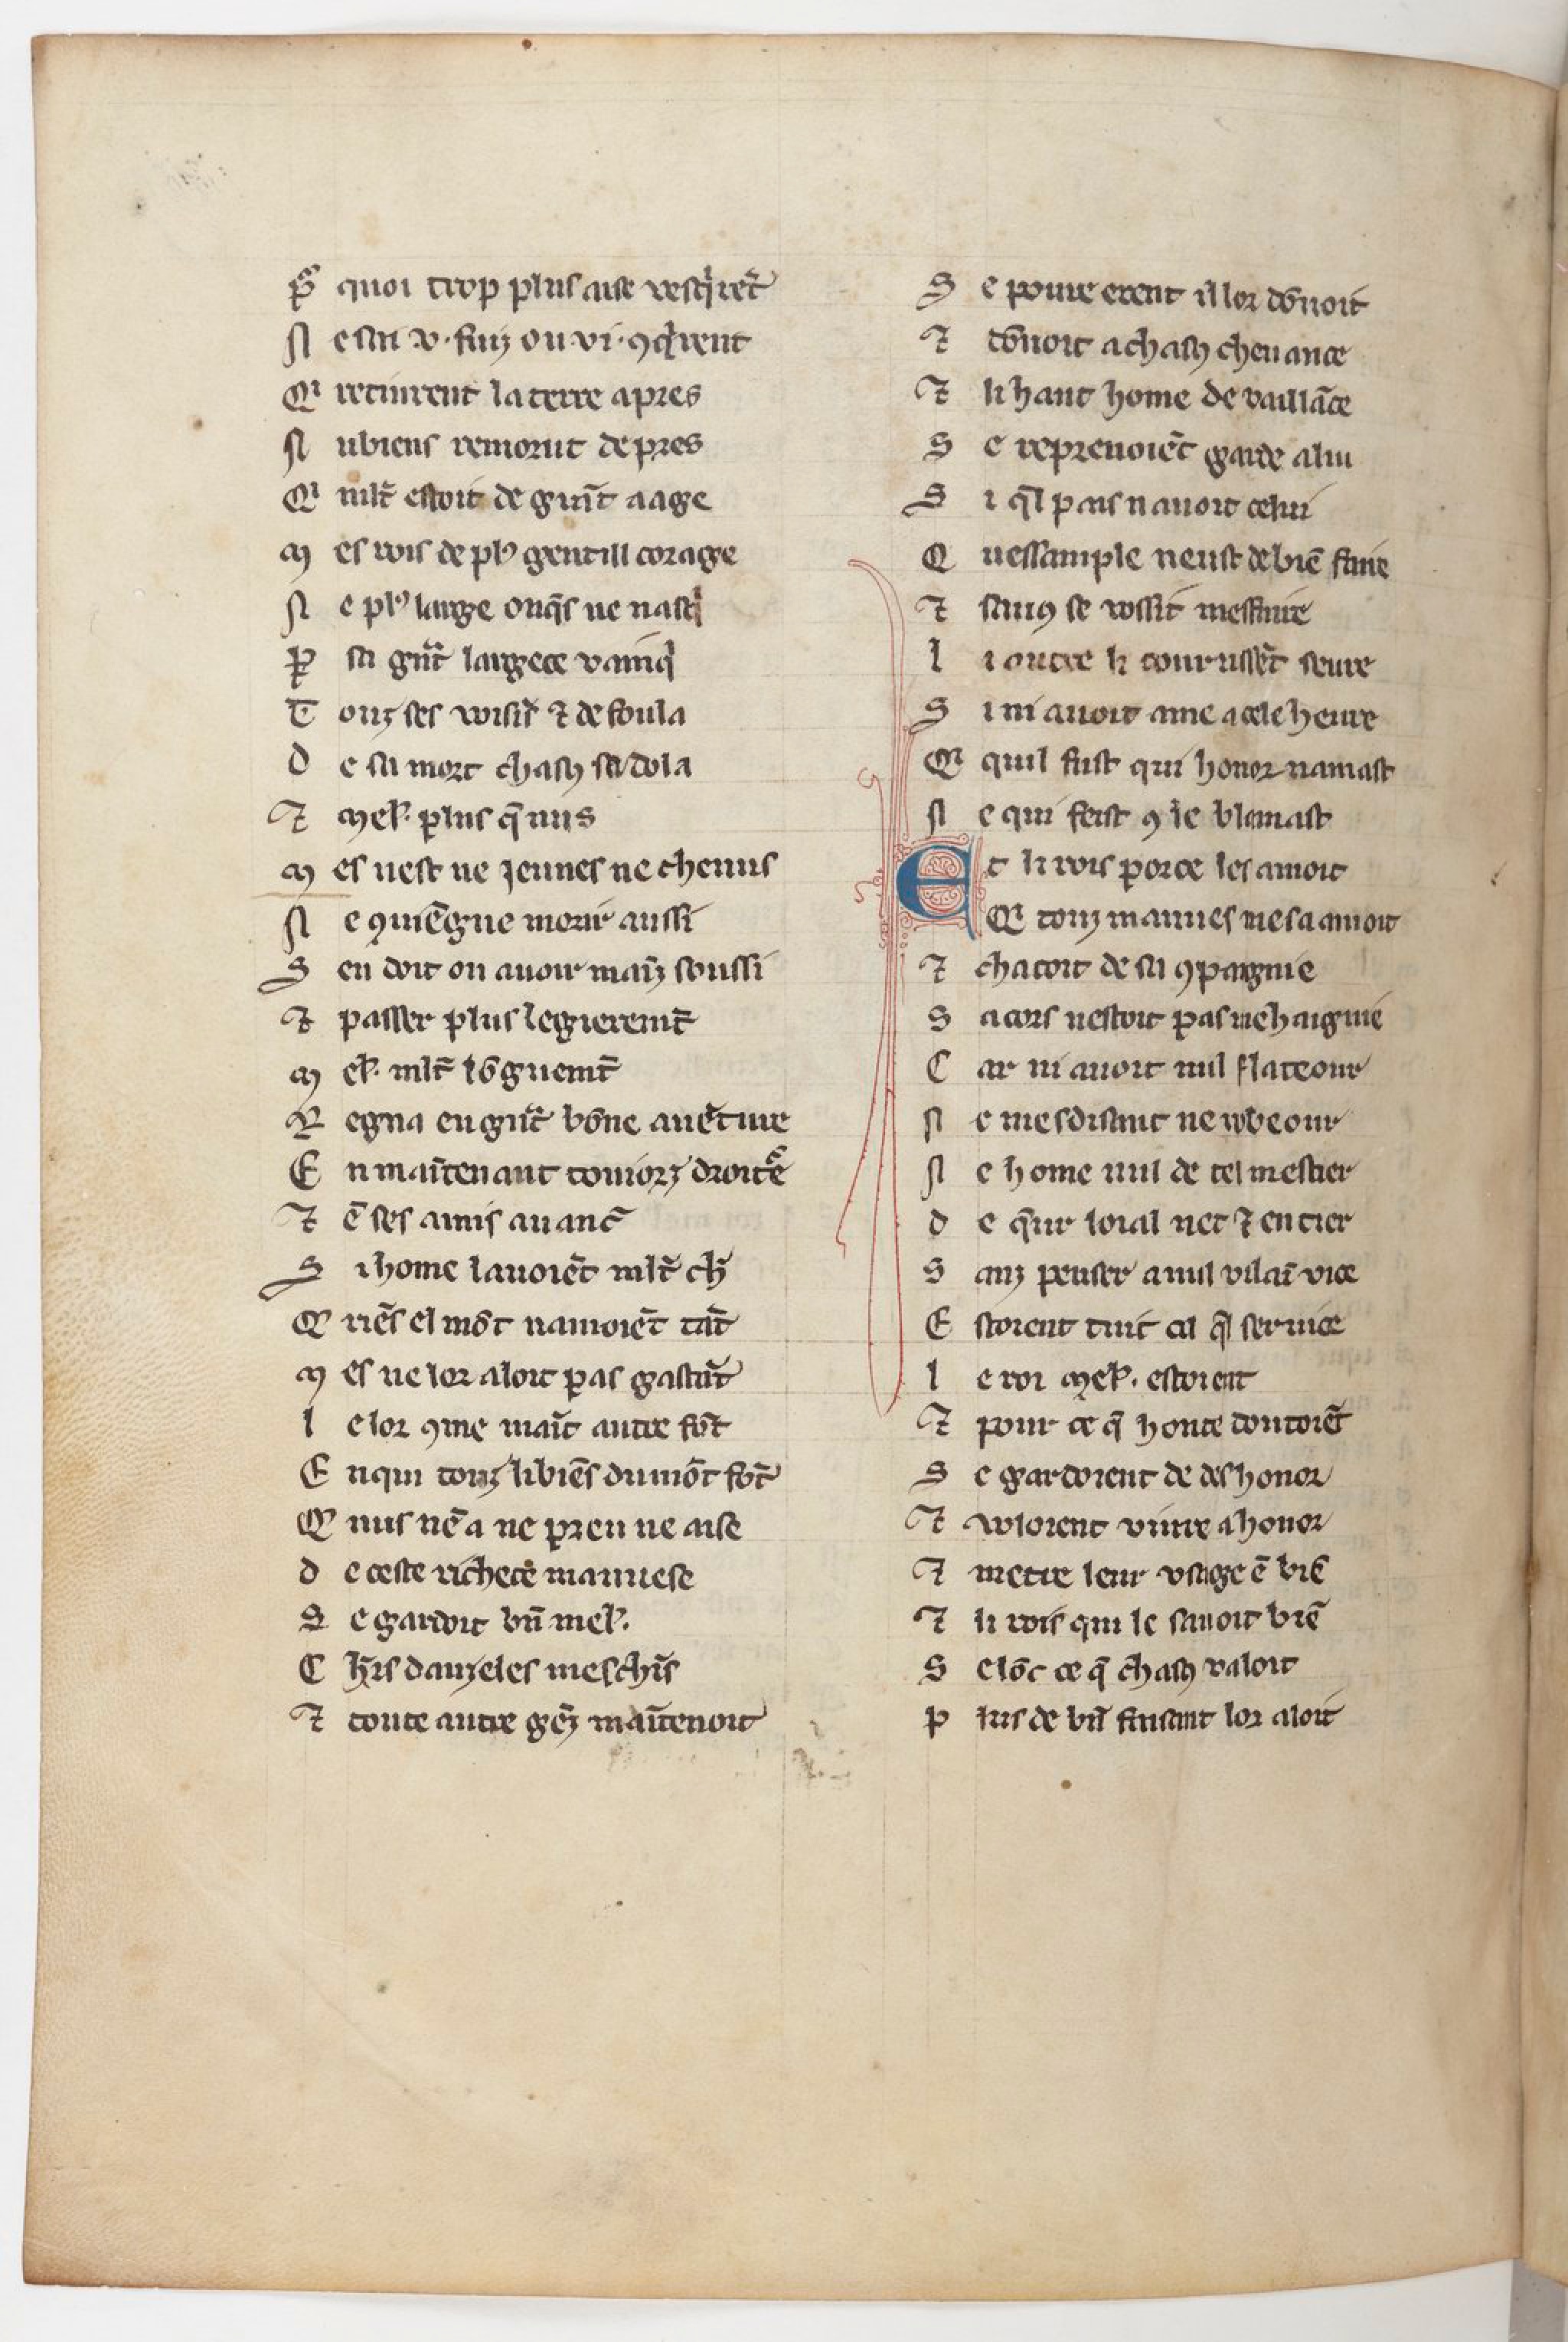 Pꝰ quoi trop plus aise vesqͥrēt
N e sai v. fuiz ou vi. ꝯqͥrent
Qi retinrent la terre apres
N ubiens remorut de pres
Qi mlt̄ estoit de gͣnt aage
M es rois de plꝰ gentill corage
N e plꝰ large onq̄s ne nasqͥ
ꝑ sa gͣnt largece vainqͥ
T ouz ses voisīs ⁊ defoula
D e sa mort chascȝ sadola
⁊ Mel'. plus q̄ nus
M es nest ne jeunes ne chenus
N e ꝯuiēgne morir aussi
S en doit on avoir mais soussi
⁊ passer plus legieremt̄
M el'. mlt̄ lōguemt̄
R egna en gͣnt bōne auēture
E n maītenant touiorz droitꝰe
⁊ ē ses amis auanc̄
S i home lauoiēt mlt̄ ch̄
Q riēs el mōt namoiēt tāt
M es ne lor aloit pas gastāt
L e lor ꝯme maīt autre fōt
E nqui touz li biēs du mōt fōt
Q nus nē a ne preu ne aise
D e ceste richece mauuese
S e gardoit bn̄ mel'.
C hr̄s danzeles meschīs
⁊ toute autre gēz maītenoit
S e poure erent il lor dōnoit
⁊ dōnoit a chascȝ cheuance
⁊ li haut home de vaillāce
S e reprenoiēt garde a lui
S i q̄l pais nauoit celui
Q uessample neust de biē faire
⁊ saucȝ se vossit mesfaire
L i autre li courussēt seure
S i ni auoit ame a cele heure
Qi quil fust qui honor namast
N e qui feist ꝯ ie blamast
E t li rois por ce les amoit
Qi touz mauues mesaamoit
⁊ chacoit de sa ꝯpaignie
S a cors nestoit pas mehaignie
C ar ni auoit nul flateour
N e mesdisant ne robeour
N e home nul de tel mestier
D e q̄ur loial net ⁊ entier
S anz penser a nul vilaī vice
E stoient tuit cil q̄l seruice
L e roi Mel'. estoient
⁊ pour ce q̄ honte doutoiēt
S e gardoient de deshonor
⁊ voloient viure a honor
⁊ metre leur vsage ē biē
⁊ li rois qui le sauoit biē
S elōc ce q̄ chascȝ valoit
P lus de bn̄ faisant lor aloit